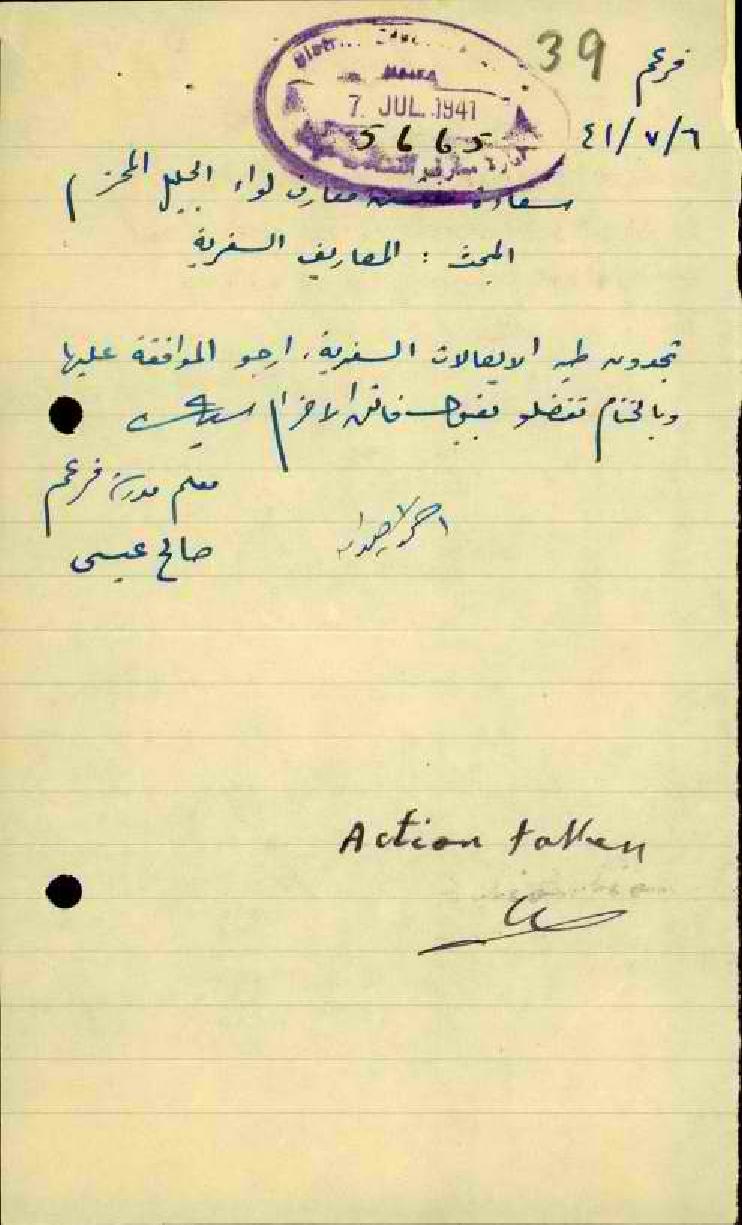 39
فرعم
٤١/٧/٦
HAIFA
7 JUL 1941
5665
سعادة مفتش معارف لواء الجليل المحترم
المبحث : المصاريف السفرية
تجدون طيه الايصالات السفرية، ارجو الموافقة عليها
وبالختام تفضلو بقبول فائق الاحترام سيدي
معلم مدرسة فرعم
صالح عيسى
Action taken